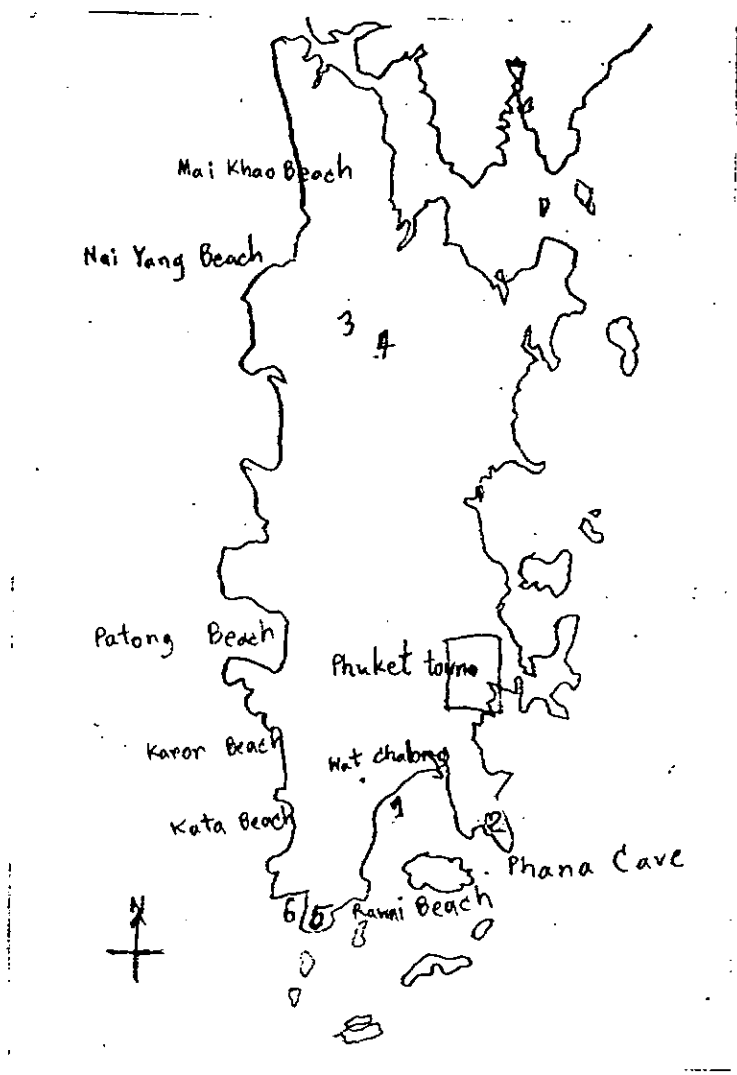 Mai Khao Beach
Nai Yang Beach
3
4
Patong Beach
Phuket town
Karor Beach
Wat Chalong
1
Kata Beach
2
Phana Cave
6
5
Rawai Beach
N